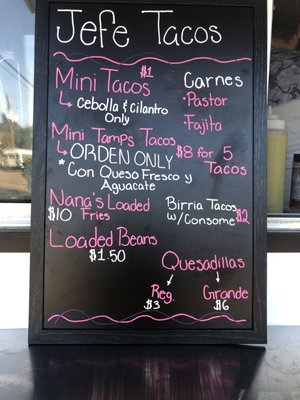 Jefe Tacos
Mini Tacos $1
↳ Cebolla & Cilantro
Only
Carnes
·Pastor
·Fajita
Mini Tamps Tacos
↳ ORDEN ONLY $8 for 5
Tacos
* Con Queso Fresco y
Aguacate
Nana's Loaded
$10 Fries
Birria Tacos
w/Consome $2
Loaded Beans
$1.50
Quesadillas
Reg. Grande
$3 $6